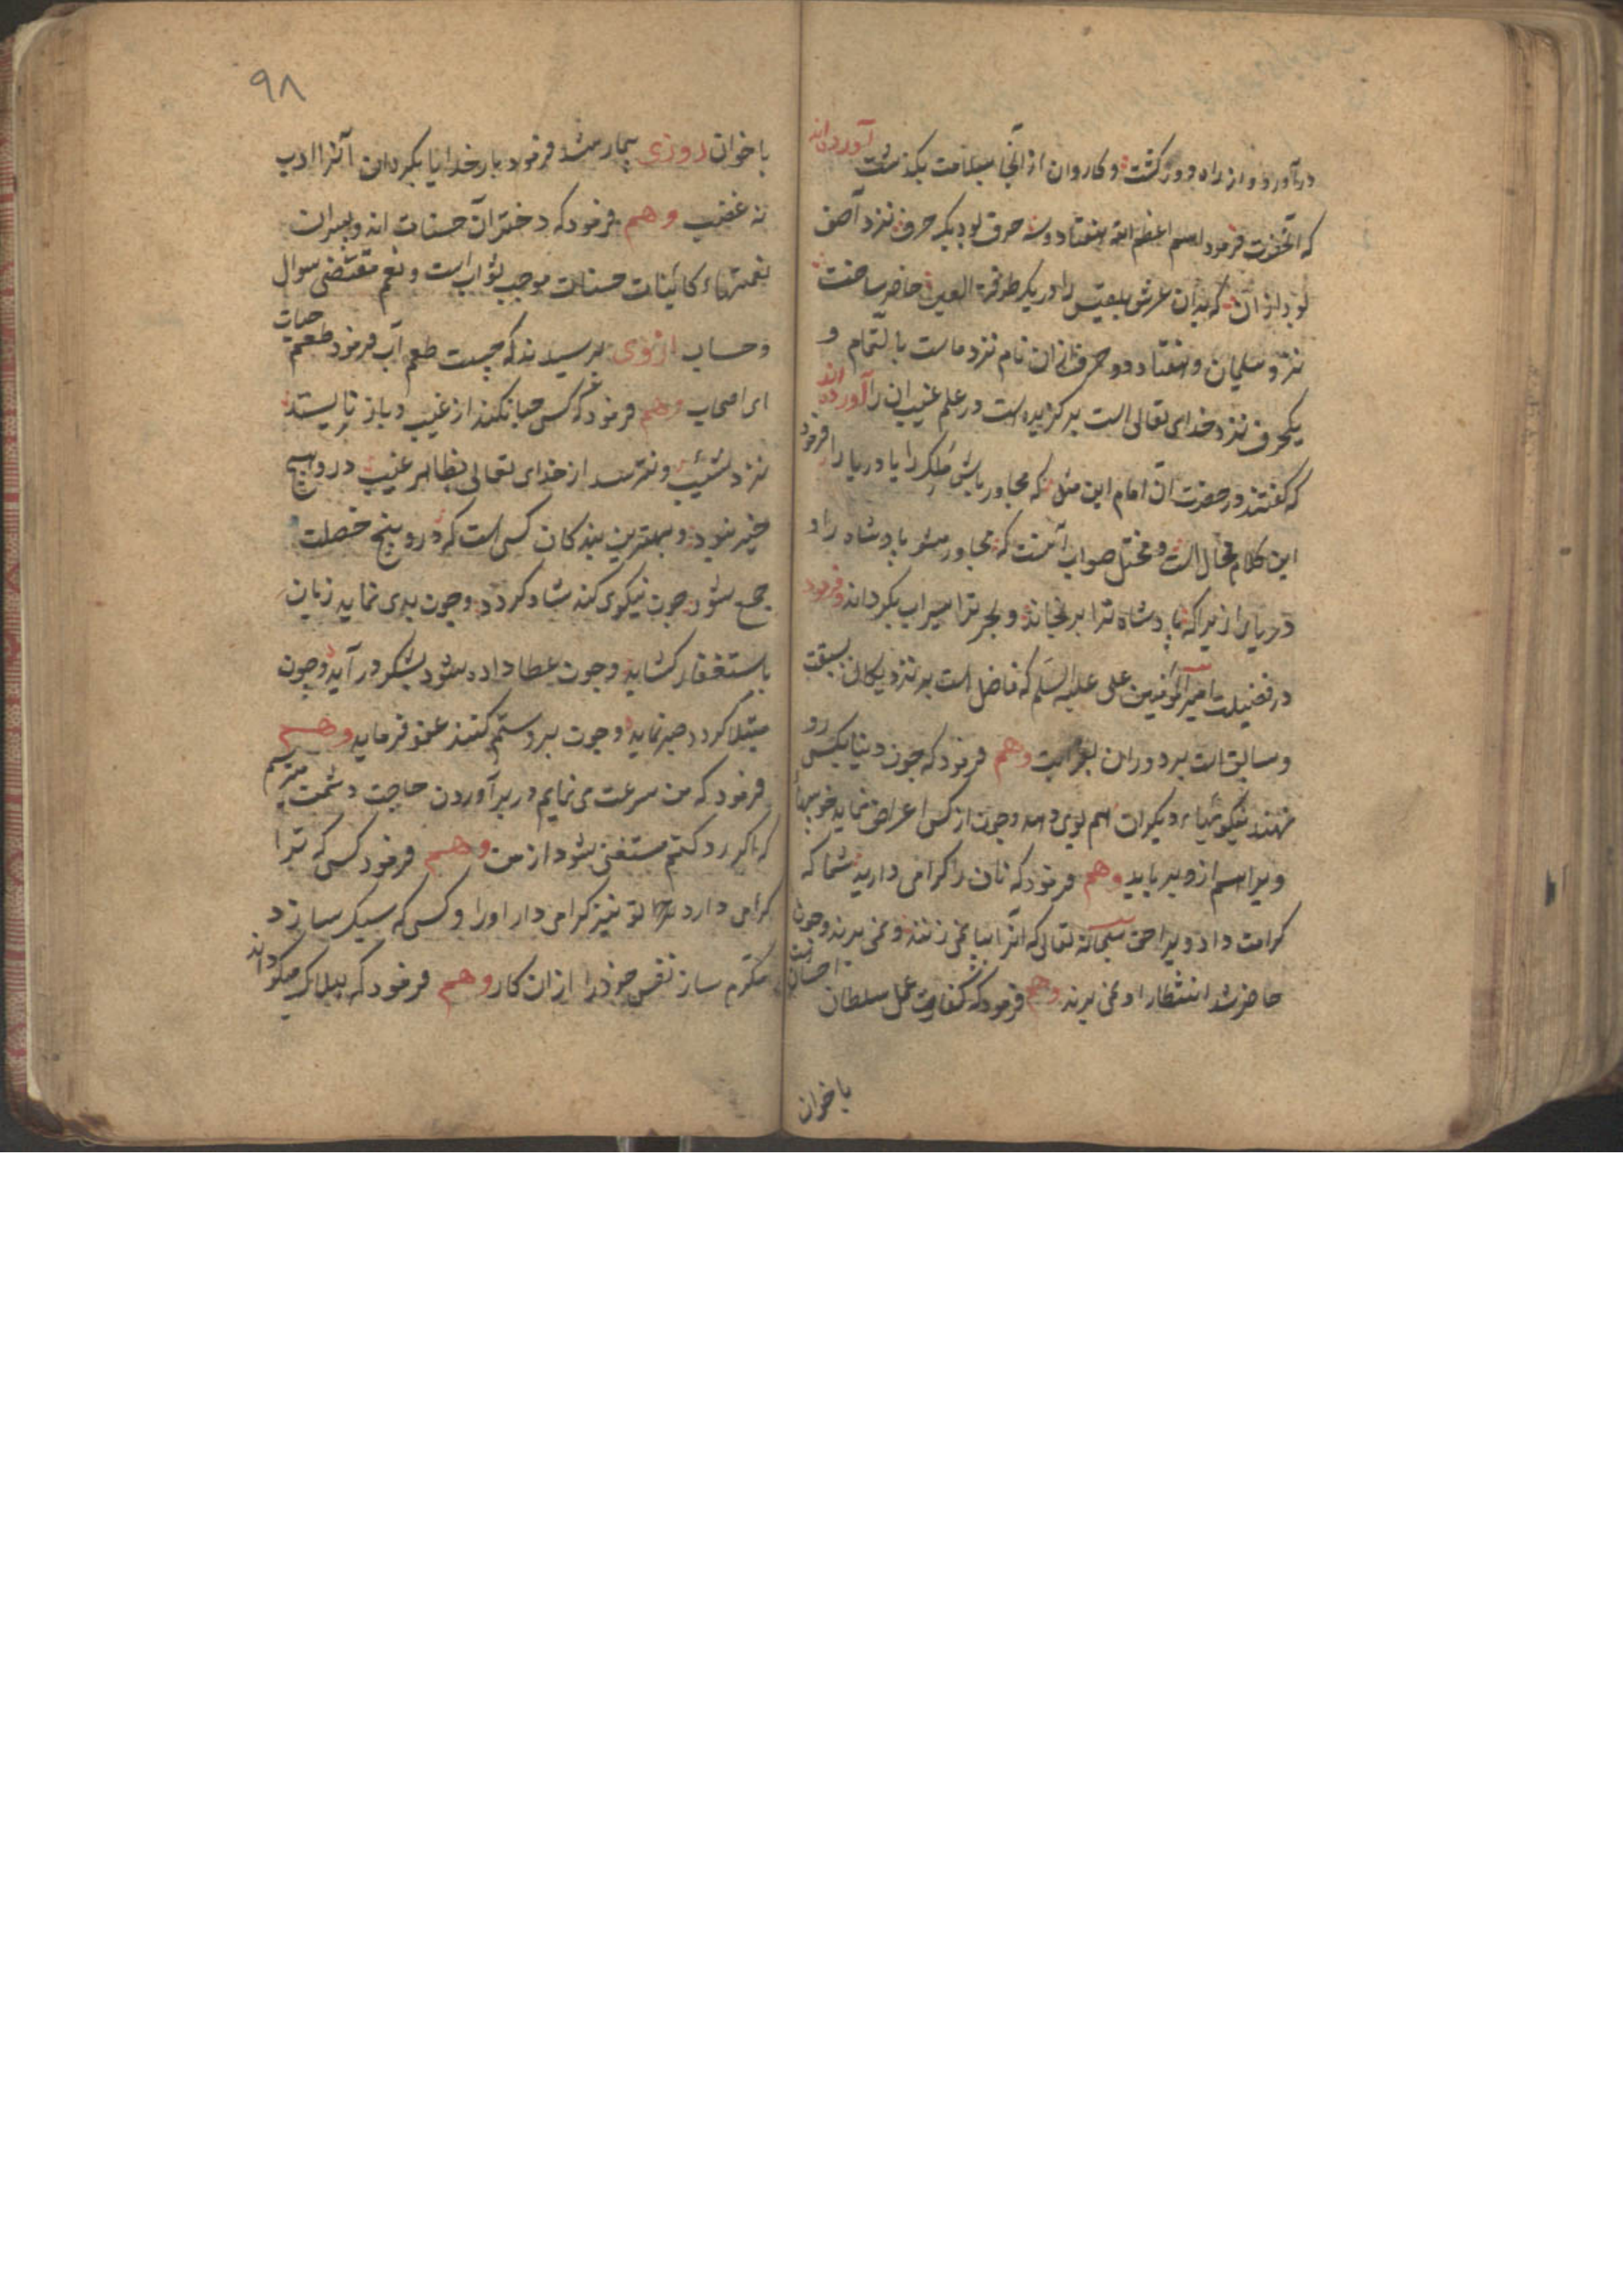 درآورد و از راه دور گشت و کاروان از آنجا بسلامت بگذشت آورده‌اند
که آنحضرت فرمود اسم اعظم الله هفتاد و سه حرف بود یک حرف نزد آصف
بود از آن که بدان عرش بلقیس را در یک طرفة العین حاضر ساخت
نزد سلیمان و هفتاد دو حرف از آن نام نزد ماست بالتمام و
یکحرف نزد خدای تعالی است برگزیده است در علم غیب آن را آورده اند
که گفتند در حضرت آن امام این مثل که مجاور باش ملک را یا دریا را فرمود
این کلام محال است و مختل صواب آنست که مجاور مشو پادشاه را و
دریا را زیرا که پادشاه ترا برنجاند و بحر ترا سیراب نگرداند و فرمود
در فضیلت امیر المؤمنین علی علیه السلم که فاضل است بر نزدیکان بسبقت
و سابق است بر دوران بقرابت وهم فرمود که چون دنیا بکسی رو
نهند نیکوئیهاء دیگران هم بوی دهد و چون از کسی اعراض نماید خوبیهاء
ویرا هم ازو برباید وهم فرمود که نان را گرامی دارید شما که
کرامت داد ویرا حق سبحانه تعالی که آنرا بپا نمی زنند و نمی برند و چون
حاضر شد انتظار او نمی برند وهم فرمود که کفارت عمل سلطان احسانست
باخوان
۹۸
باخوان روزی بیمار شد فرمود بار خدایا بگردان آنرا ادب
نه غضب وهم فرمود که دختران حسنات اند و پسران
نعمتهاء کائنات حسنات موجب ثواب است و نعم مقتضی سوال
و حساب ازوی پرسیدند که چیست طعم آب فرمود طعم حیات
ای اصحاب وهم فرمود که کسی حیا نکند از عیب و باز نایستد
نزد شیب و نترسد از خدای تعالی بظاهر غیب در و هیچ
خیر نبود و بهترین بندگان کسی است که درو پنج خصلت
جمع شود چون نیکوی کند شاد گردد و چون بدی نماید زبان
باستغفار گشاید و چون عطا داده شود بشکر در آید و چون
مبتلا گردد صبر نماید و چون برو ستم کنند عفو فرماید وهم
فرمود که من سرعت می نمایم در برآوردن حاجت دشمن میترسم
که اگر رد کنم مستغنی شود از من وهم فرمود کسی که ترا
گرامی دارد تو نیز گرامی دار او را و کسی که سبک سازد
مکرم ساز نفس خود را از ان کار وهم فرمود که هلاک میگرداند